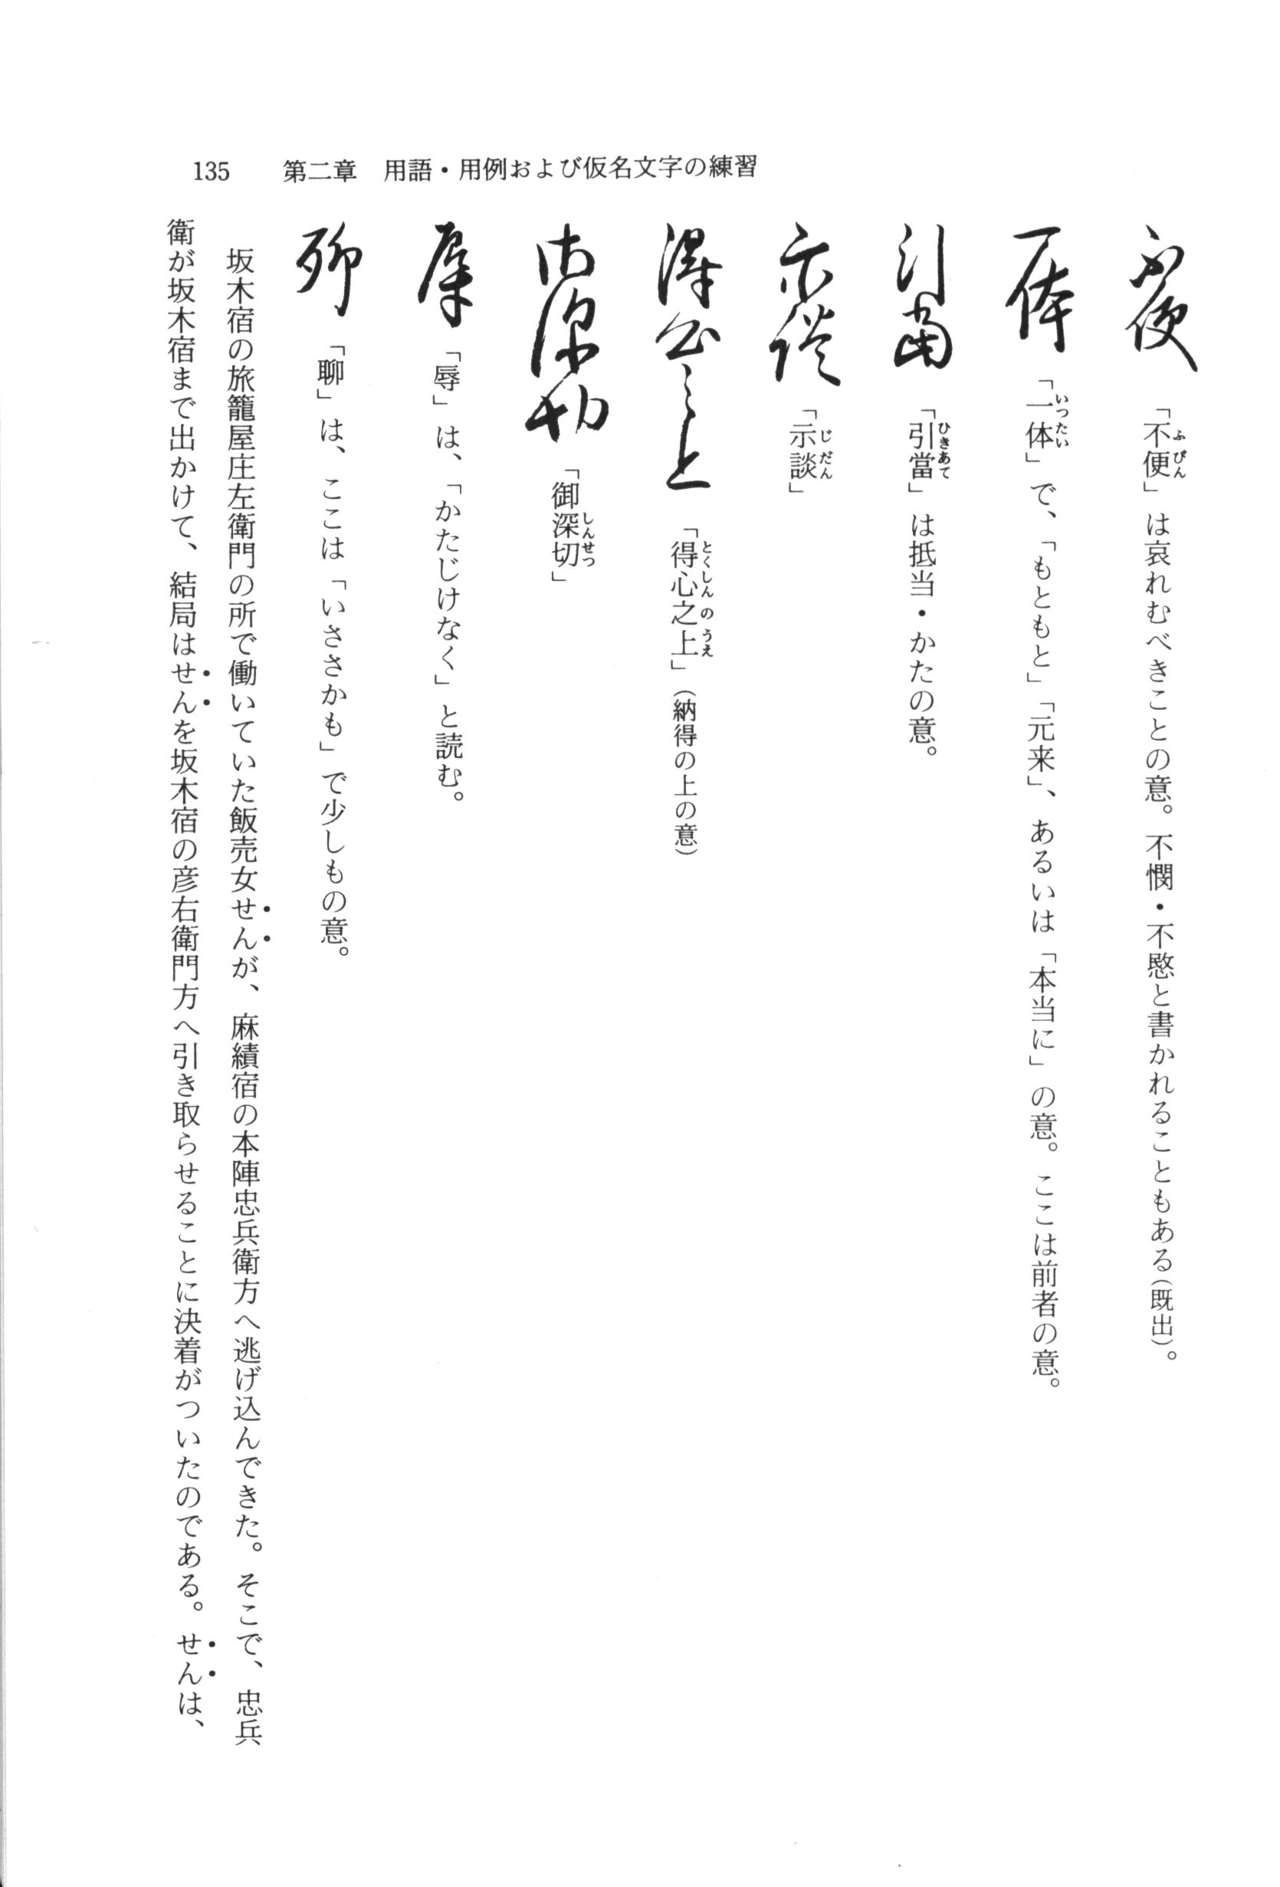 135　第二章　用語・用例および仮名文字の練習
不便「不便」は哀れむべきことの意。不憫・不愍と書かれることもある（既出）。
ふびん
一体「一体」で、「もともと」「元来」、あるいは「本当に」の意。ここは前者の意。
いつたい
引當「引當」は抵当・かたの意。
ひきあて
示談「示談」
じだん
得心之上「得心之上」（納得の上の意）
とくしんのうえ
御深切「御深切」
しんせつ
辱「辱」は、「かたじけなく」と読む。
聊「聊」は、ここは「いささかも」で少しもの意。
坂木宿の旅籠屋庄左衛門の所で働いていた飯売女せんが、麻績宿の本陣忠兵衛方へ逃げ込んできた。そこで、忠兵
衛が坂木宿まで出かけて、結局はせんを坂木宿の彦右衛門方へ引き取らせることに決着がついたのである。せんは、